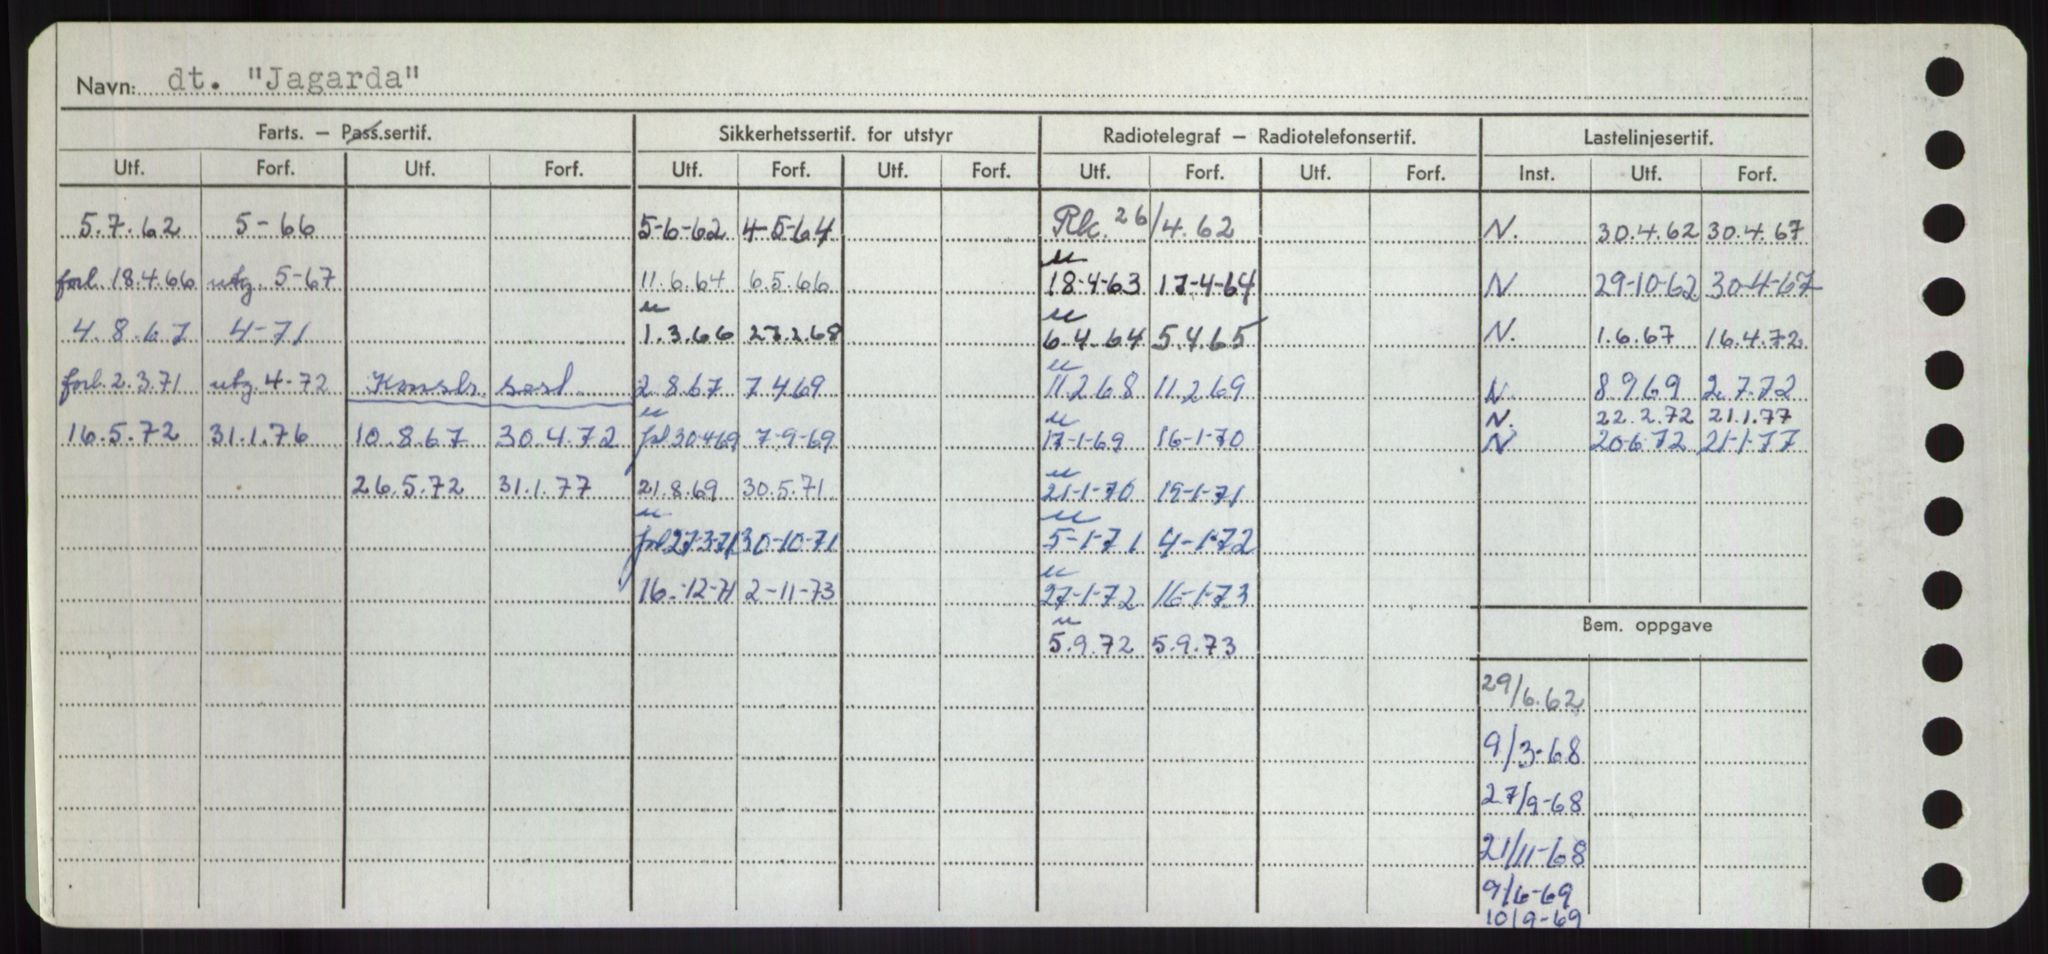 Navn: dt. "Jagarda"
Farts. — Pass.sertif. Sikkerhetssertif. for utstyr Radiotelegraf — Radiotelefonsertif. Lastelinjesertif.
Utf. Forf. Utf. Forf. Utf. Forf. Utf. Forf. Utf. Forf. Utf. Forf. Inst. Utf. Forf.
5.7.62 5-66 5-6-62 4-5-64 Rk. 26/4.62 N. 30.4.62 30.4.67
forl. 18.4.66 utg. 5-67 11.6.64 6.5.66 18-4-63 17-4-64 N 29-10-62 30-4-67
4.8.67 4-71 1.3.66 27.2.68 6.4.64 5.4.65 N. 1.6.67 16.4.72
forl. 2.3.71 utg. 4-72 2.8.67 7.4.69 11.2.68 11.2.69 N. 8.9.69 2.7.72
N. 22.2.72 21.1.77
16.5.72 31.1.76 10.8.67 30.4.72 30-4-69 7-9-69 17-1-69 16-1-70 N 20-6-72 21-1-77
26.5.72 31.1.77 21.8.69 30.5.71 21-1-70 19-1-71
27-3-71 30-10-71 5-1-71 4-1-72
16-12-71 2-11-73 27-1-72 16-1-73
5.9.72 5.9.73
Bem. oppgave
29/6.62
9/3-68
27/9-68
21/11-68
9/6-69
10/9-69